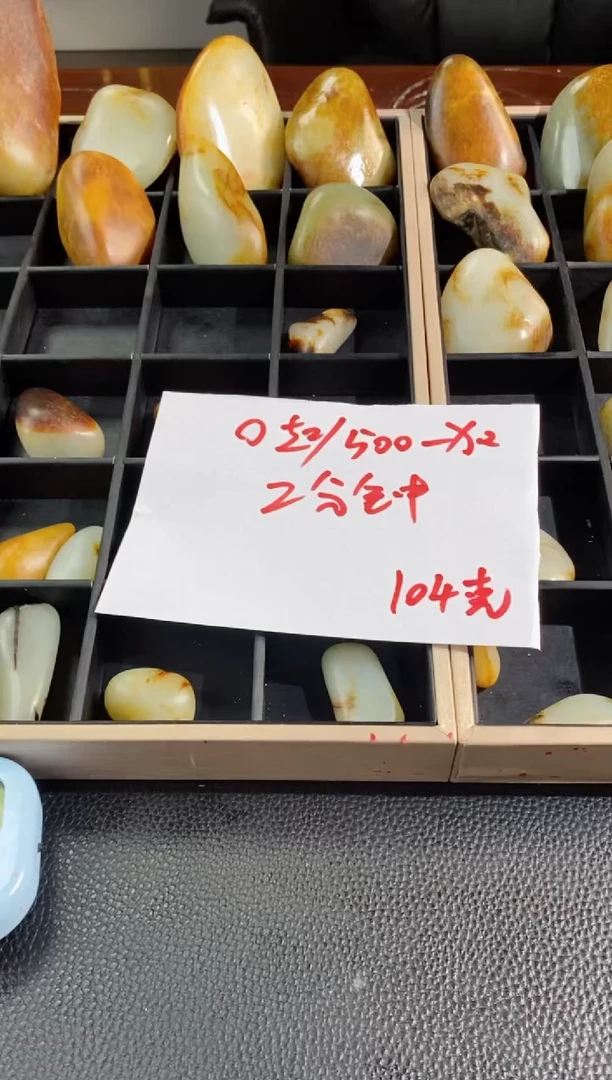 0起/500一次
2分钟
104克